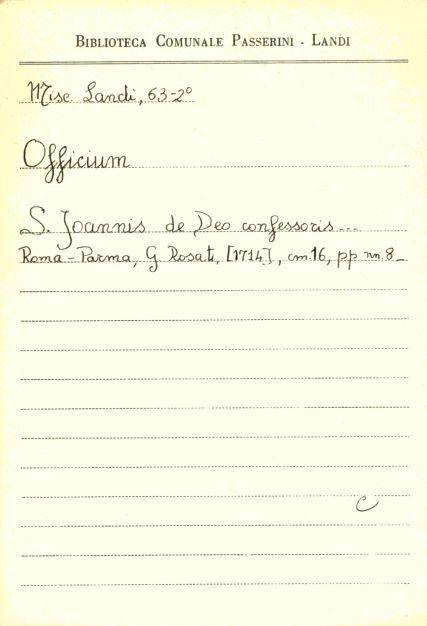 BIBLIOTECA COMUNALE PASSERINI - LANDI
Misc Landi, 63-2°
Officium
S. Joannis de Deo confessoris...
Roma - Parma, G. Rosati, [1714], cm.16, pp nn. 8_
C